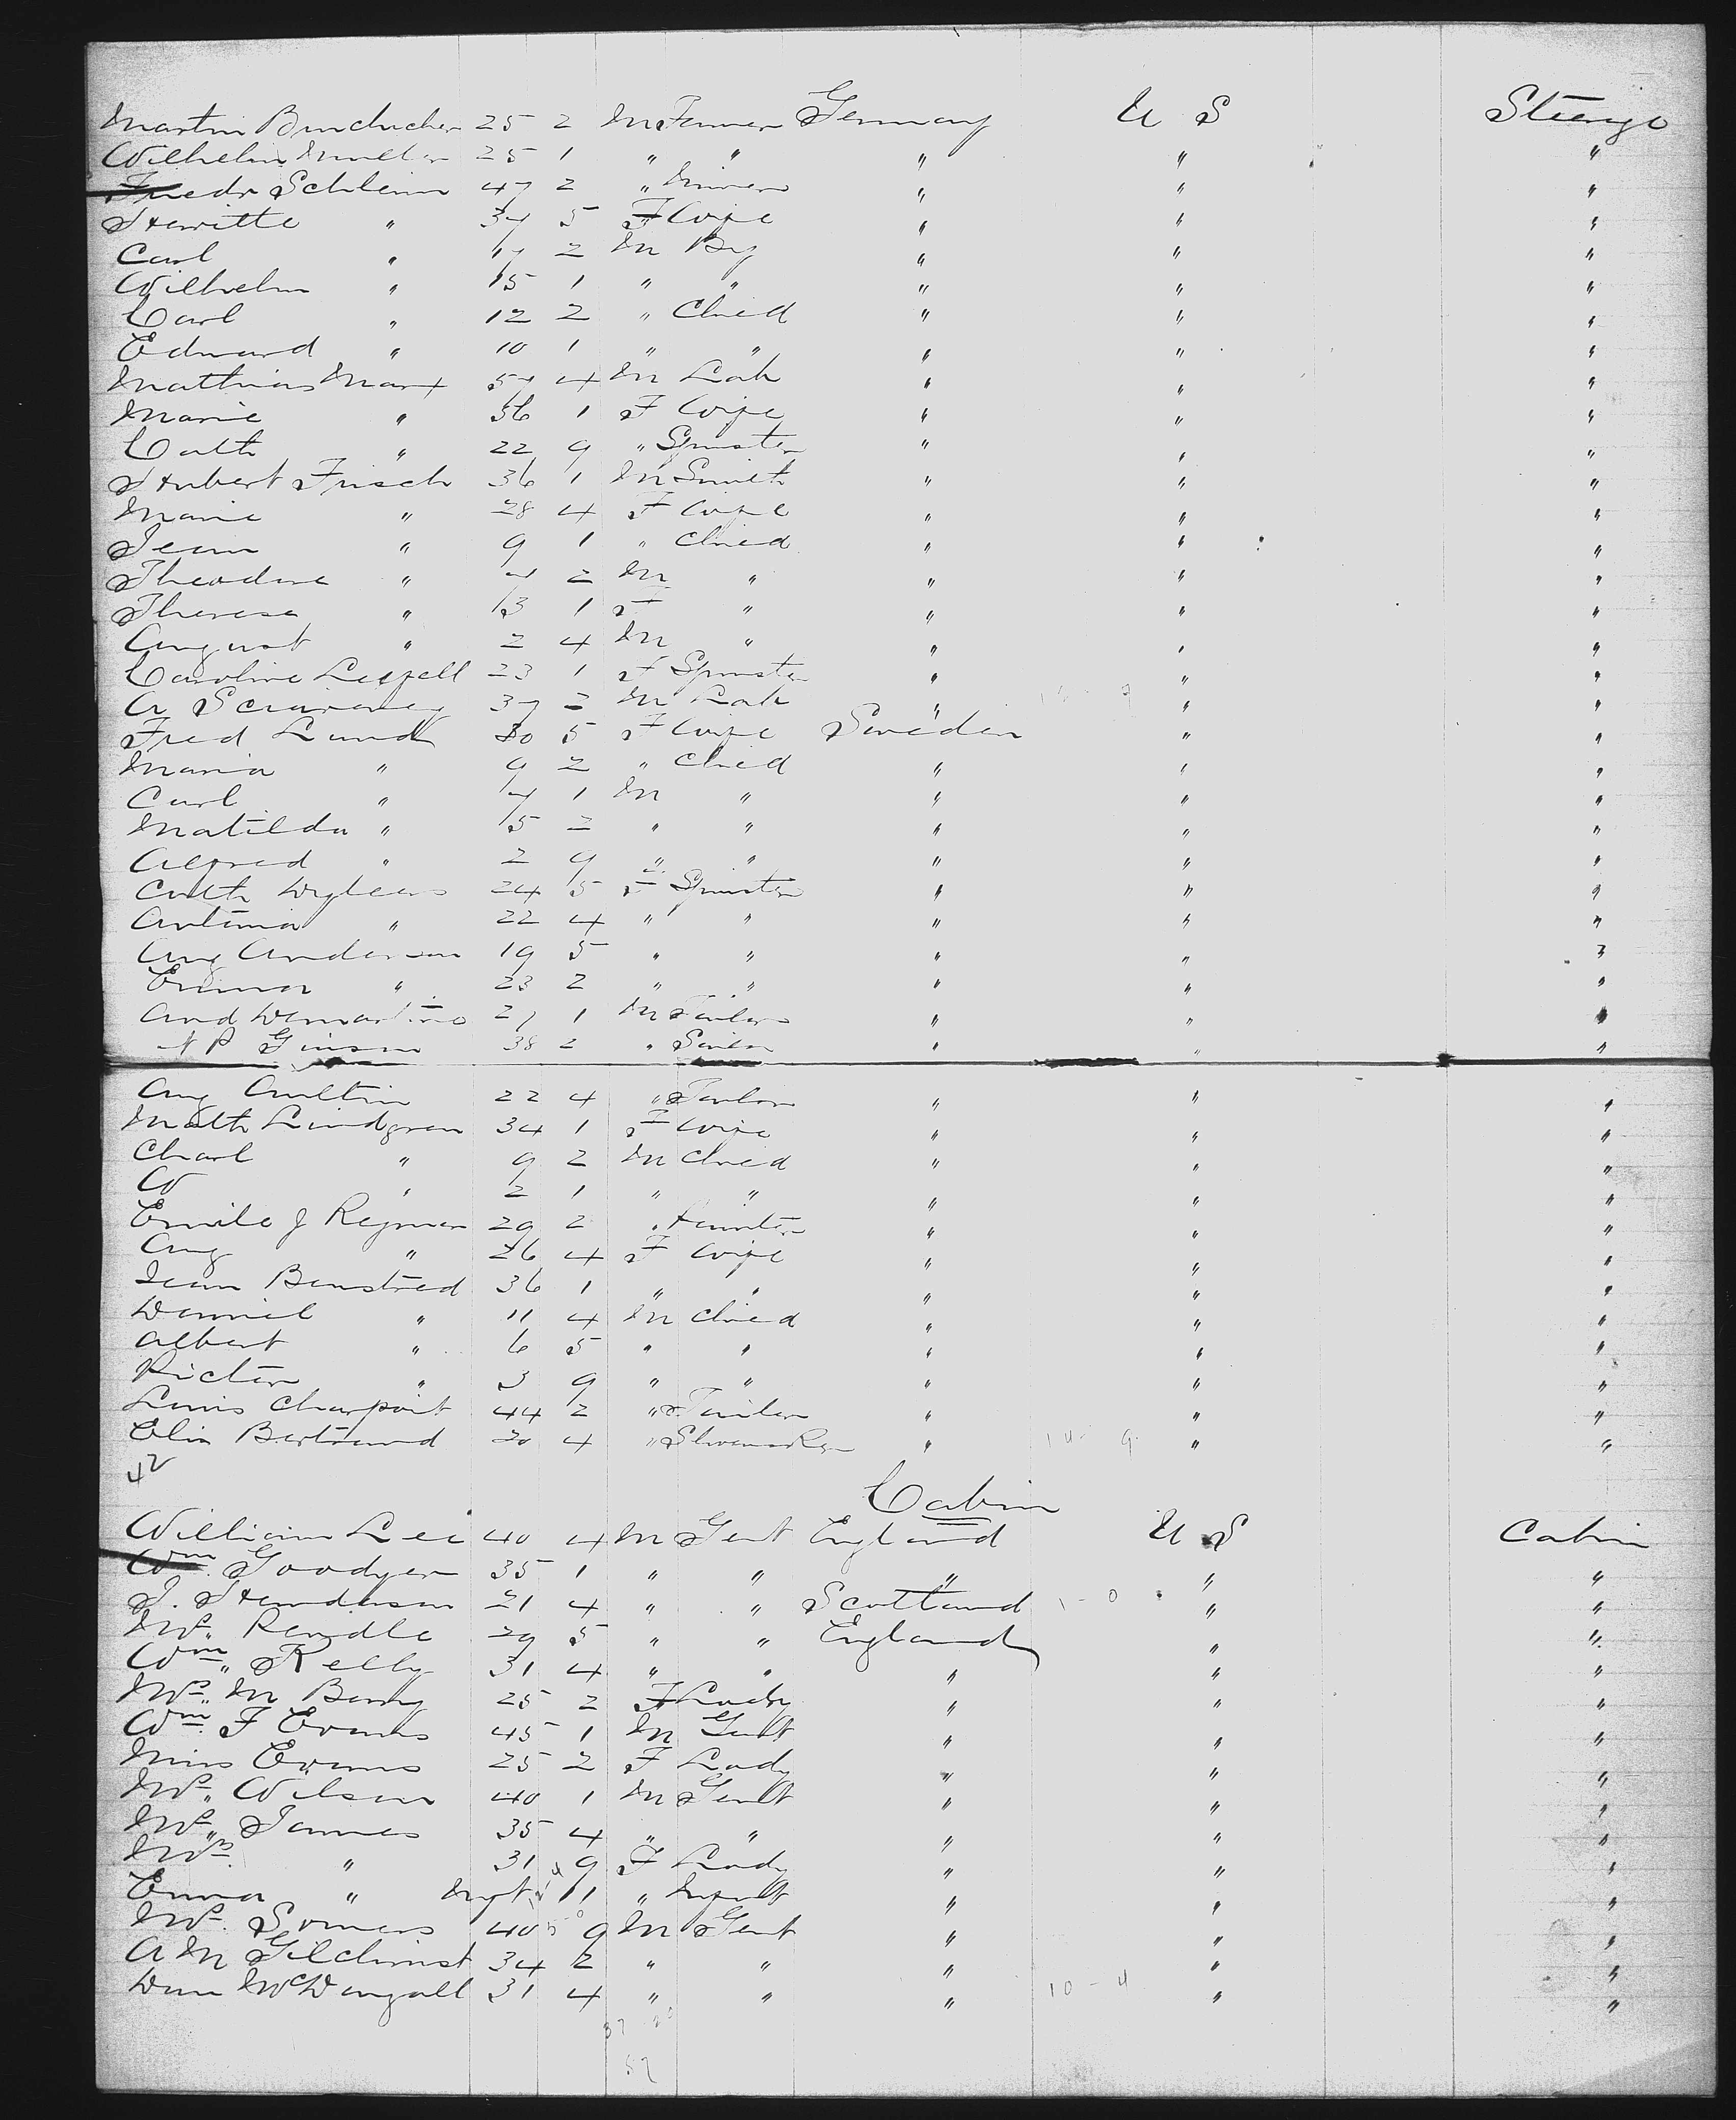 Martin Bundscher 25 2 M Farmer Germany U S Steerage
Wilhelm Muller 25 1 " " " " "
Friedr Schleim 47 2 " Miner " " "
Henritte " 34 5 F Wife " " "
Carl " 17 2 M Boy " " "
Wilhelm " 15 1 " " " " "
Carl " 12 2 " Child " " "
Edward " 10 1 " " " " "
Mathias Marx 57 4 M Lab " " "
Marie " 56 1 F Wife " " "
Cath " 22 9 " Spinster " " "
Hubert Frisch 36 1 M Smith " " "
Marie " 28 4 F Wife " " "
Jean " 9 1 " Child " " "
Theodore " 2 M " " " "
Theresa " 13 1 F " " " "
August " 2 4 M " " " "
Caroline 23 1 F Spinster " " "
A 37 2 M Lab " " "
Fred Lund 30 5 F Wife Sweden " "
Maria " 9 2 " Child " " "
Carl " 1 M " " " "
Matilda " 2 " " " " "
Alfred " 2 9 " " " " "
Cath 24 5 F Spinster " " "
Antonia " 22 4 " " " " "
Aug Anderson 19 5 " " " " "
Emma " 23 2 " " " " "
And 1 M Tailor " " "
N P 38 2 " Sailor " " "
Aug 22 4 " Tailor " " "
Math Lindgren 34 1 F Wife " " "
Charl " 9 2 M Child " " "
W " 2 1 " " " " "
Emile J Reymer 29 2 " Painter " " "
Aug " 26 4 F Wife " " "
Jean Benstred 36 1 " " " " "
Daniel " 11 4 M Child " " "
Albert " 6 5 " " " " "
Victor " 3 9 " " " " "
Louis Charpoit 44 2 " Tailor " " "
Elix Bertrand 20 4 " Shoemaker " " "
42
Cabin
William Lee 40 4 M Gent England U S Cabin
Wm. Goodyer 35 1 " " " " "
J. Henderson 21 4 " " Scotland " "
Mr. Rendle 29 5 " " England " "
Wm. Kelly 31 4 " " " " "
Mrs. M Berry 25 2 F Lady " " "
Wm. F Evans 45 1 M Gent " " "
Miss Evans 25 2 F Lady " " "
Mr. Wilson 40 1 M Gent " " "
Mr. James 35 4 " " " " "
Mrs. " 31 9 F Lady " " "
Emma " Inft 11 " Infant " " "
Mr. Somers 40 9 M Gent " " "
A M Gilchrist 34 2 " " " " "
Dun McDougall 31 4 " " " 10-4 " "
37
57